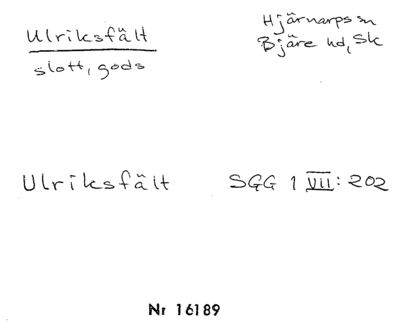 Ulriksfält
slott, gods
Hjärnarps sn
Bjäre hd, Sk
Ulriksfält SGG 1 VII: 202
Nr 16189